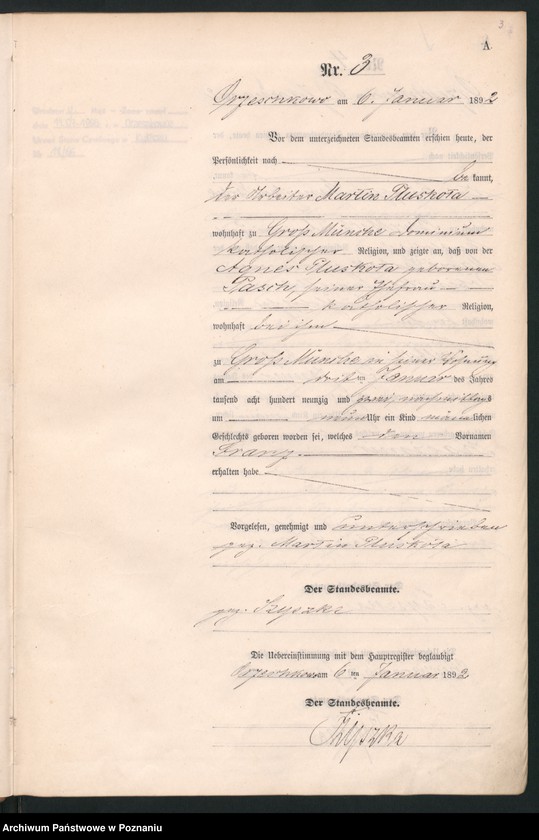 3
A
Nr. 3
Orzeschkowo am 6. Januar 1892
Vor dem unterzeichneten Standesbeamten erschien heute, der
Persönlichkeit nach
be kannt,
der Arbeiter Martin Pluskota
wohnhaft zu Groß Münche Dominium
katholischer Religion, und zeigte an, daß von der
Agnes Pluskota geborenen
Pasch, seiner Ehefrau
katholischer Religion,
wohnhaft bei ihm
zu Groß Münche in seiner Wohnung
am dritten Januar des Jahres
tausend acht hundert neunzig und zwei nachmittags
um neun Uhr ein Kind männlichen
Geschlechts geboren worden sei, welches den Vornamen
Franz
erhalten habe
Vorgelesen, genehmigt und unterschrieben
gez. Martin Pluskota
Der Standesbeamte.
gez. Zyszka
Die Uebereinstimmung mit dem Hauptregister beglaubigt
Orzeschkowo am 6 ten Januar 1892
Der Standesbeamte.
Zyszka
Archiwum Państwowe w Poznaniu